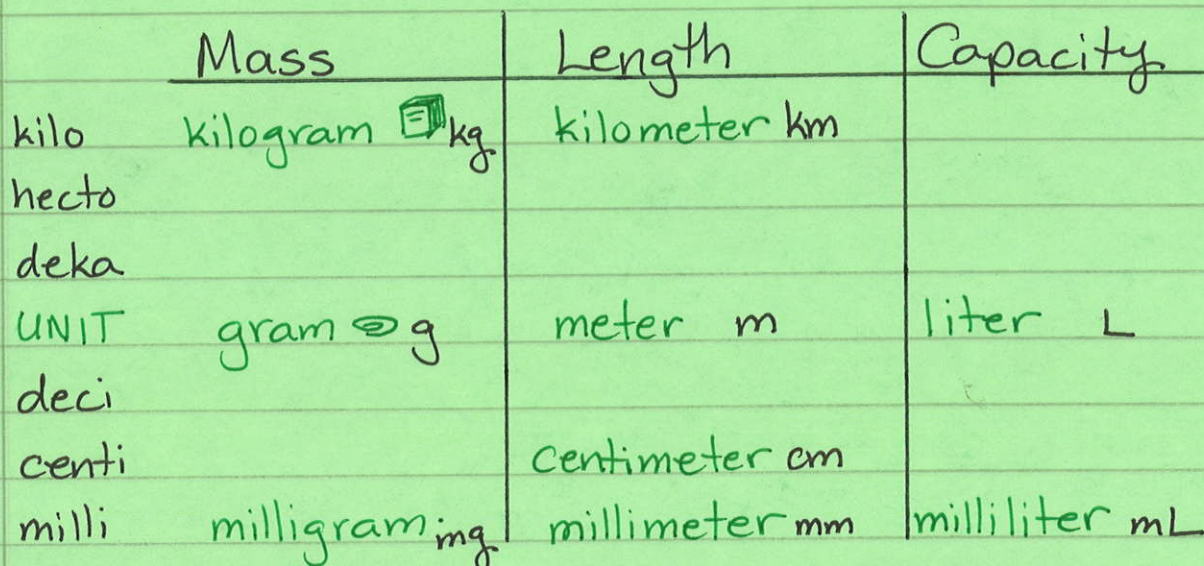 Mass Length Capacity
kilo kilogram kg kilometer km
hecto
deka
UNIT gram g meter m liter L
deci
centi centimeter cm
milli milligram mg millimeter mm milliliter mL